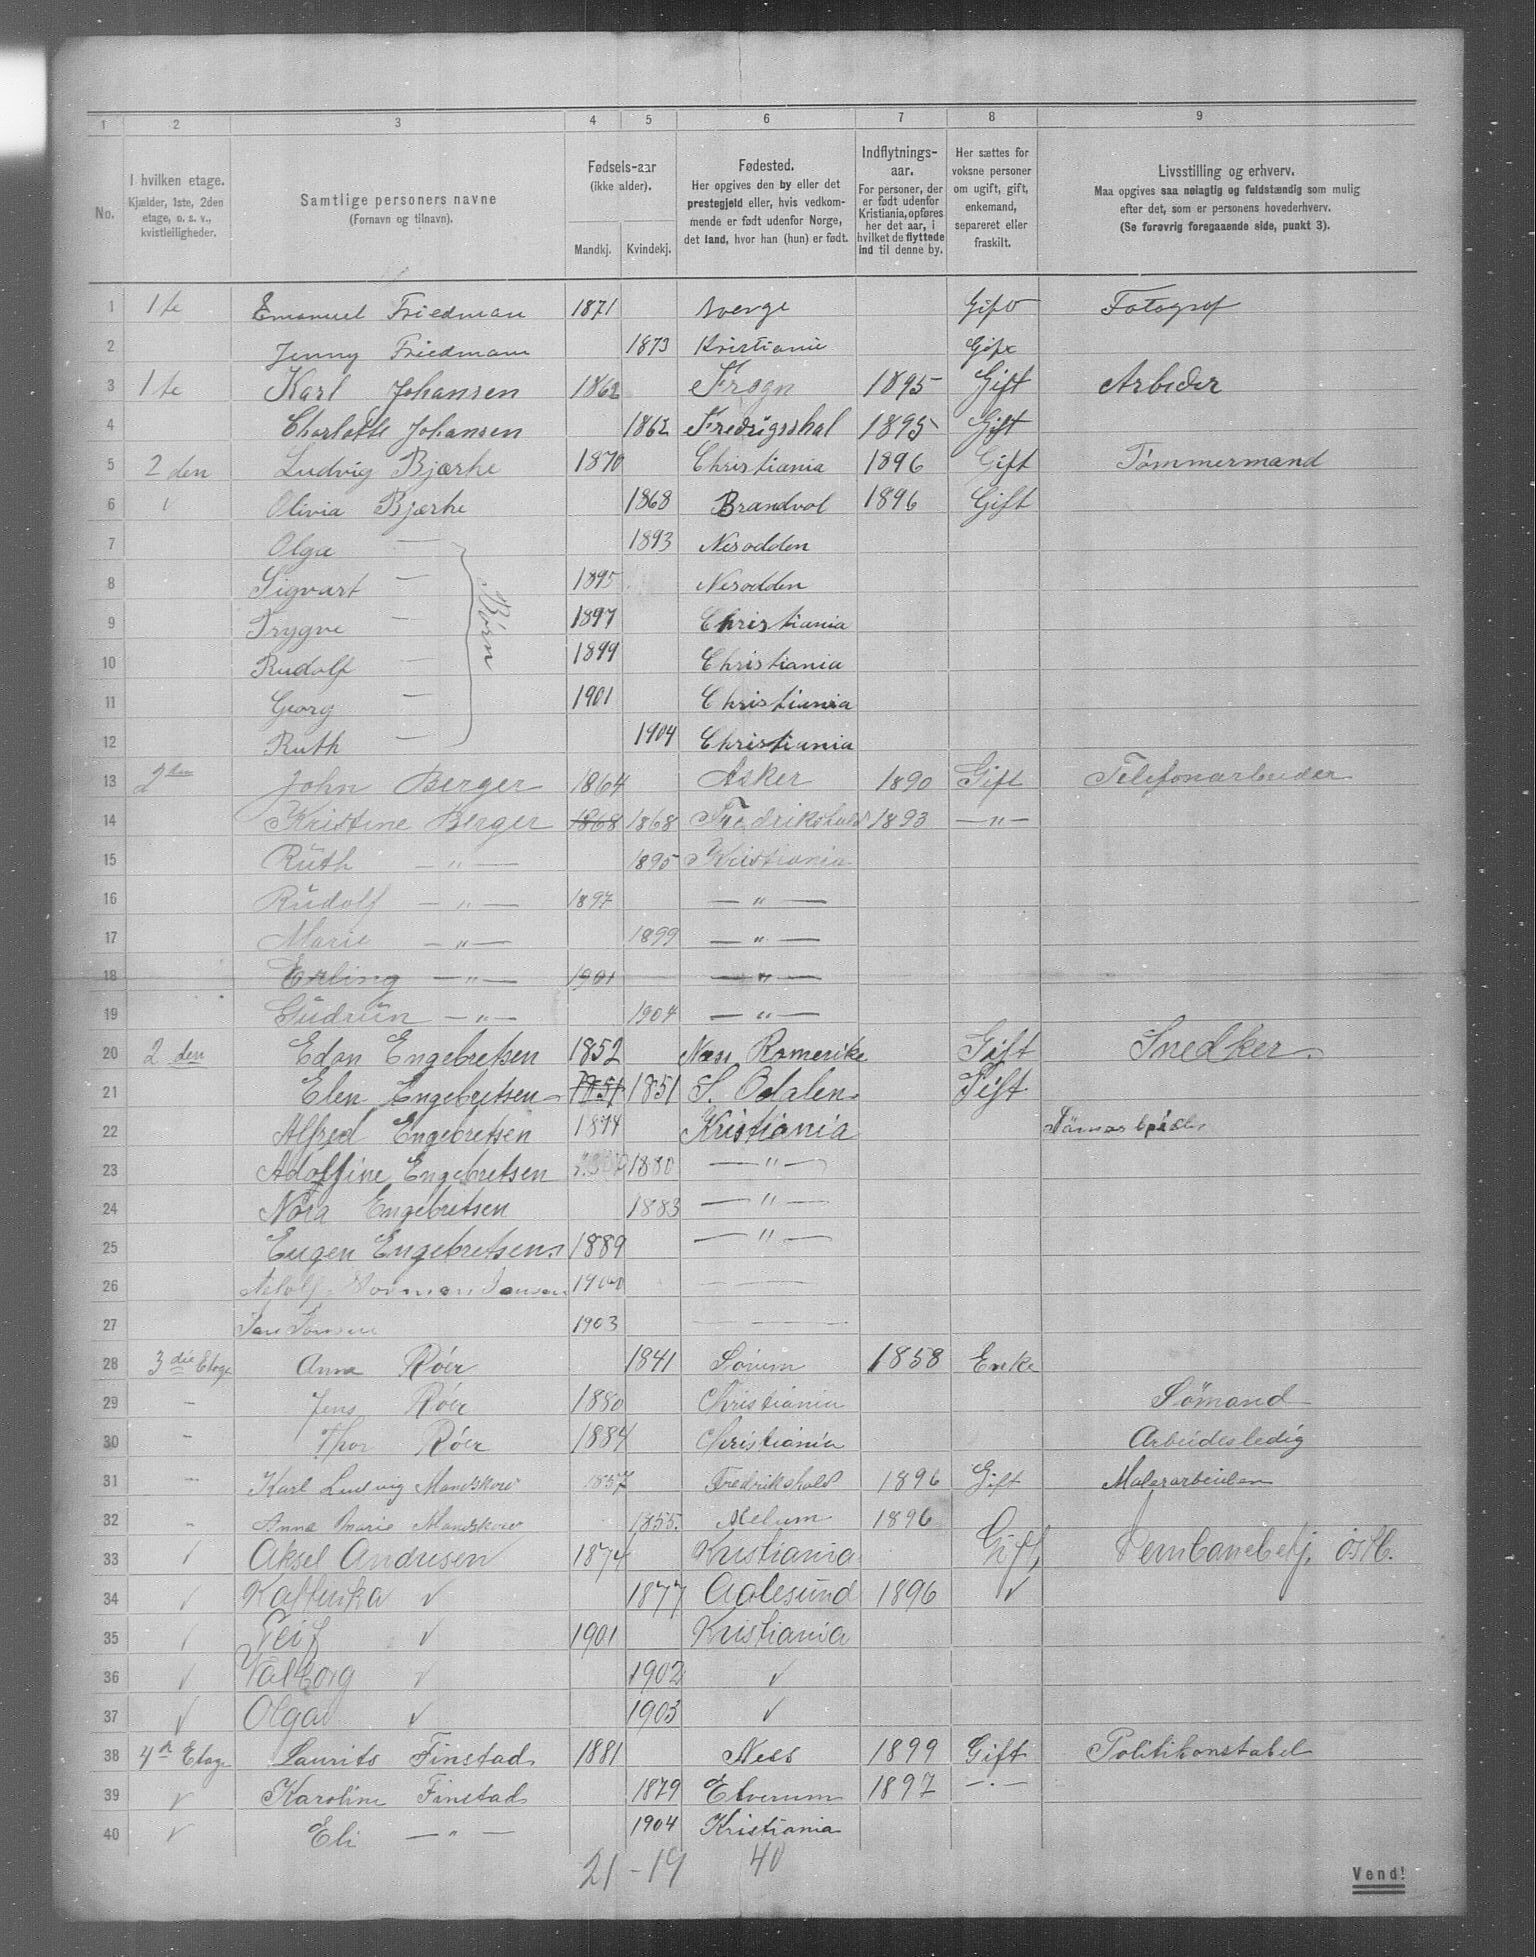 1 2 3 4 5 6 7 8 9
No.
I hvilken etage.
Kjælder, 1ste, 2den
etage, o. s. v.,
kvistleiligheder.
Samtlige personers navne
(Fornavn og tilnavn).
Fødsels-aar
(ikke alder).
Mandkj. Kvindekj.
Fødested.
Her opgives den by eller det
prestegjeld eller, hvis vedkom-
mende er født udenfor Norge,
det land, hvor han (hun) er født.
Indflytnings-
aar.
For personer, der
er født udenfor
Kristiania, opføres
her det aar, i
hvilket de flyttede
ind til denne by.
Her sættes for
voksne personer
om ugift, gift,
enkemand,
separeret eller
fraskilt.
Livsstilling og erhverv.
Maa opgives saa nøiagtig og fuldstændig som mulig
efter det, som er personens hovederhverv.
(Se forøvrig foregaaende side, punkt 3).
1 1te Emanuel Friedman 1871 Gift Fotograf
2 Jenny Friedmann 1873 Kristiania Gift
3 1te Karl Johansen 1862 Frogn 1895 Gift Arbeider
4 Charlotte Johansen 1862 Fredrigsshal 1895 Gift
5 2 den Ludvig Bjærke 1870 Christiania 1896 Gift Tømmermand
6 Olivia Bjærke 1868 Brandvol 1896 Gift
7 Olga — 1893 Nesodden
8 Sigvart — 1895 Nesodden
9 Trygve — Børn 1897 Christiania
10 Rudolf — 1899 Christiania
11 Georg — 1901 Christiania
12 Ruth — 1904 Christiania
13 2den John Berger 1864 Asker 1890 Gift Telefonarbeider
14 Kristine Berger 1868 1868 Fredrikshald 1893 — " —
15 Ruth — " — 1895 Kristiania
16 Rudolf — " — 1897 — " —
17 Marie — " — 1899 — " —
18 Erling — " — 1901 — " —
19 Gudrun — " — 1904 — " —
20 2 den Edan Engebretsen 1852 Næs Romerike Gift Snedker.
21 Elen Engebretsen 1851 1851 S. Odalen Gift
22 Alfred Engebretsen 1874 Kristiania
23 Adolfine Engebretsen 1880 — " —
24 Nora Engebretsen 1883 — " —
25 Eugen Engebretsen 1889 — " —
26 Adolf Norman Jansen 1900 — —
27 1903 — —
28 3die Etage Anna Röer 1841 Sörum 1858 Enke
29 — Jens Röer 1880 Christiania Sömand
30 — Thor Röer 1884 Christiania Arbeidesledig
31 — Karl Ludvig Mandskow 1857 Fredrikshald 1896 Gift Malerarbeider
32 " Anna Marie Mandskow 1855. Melum 1896
33 Aksel Andresen 1874 Kristiania Gift, Jernbanebetj. östb.
34 Kathinka 1877 Aalesund 1896
35 Leif 1901 Kristiania
36 Valborg 1902
37 Olga 1903
38 4de Etage Laurits Finstad 1881 Nees 1899 Gift Politikonstabel
39 Karoline Finstad 1879 Elverum 1897 — " —
40 Eli — " — 1904 Kristiania
21 - 19 40
Vend!